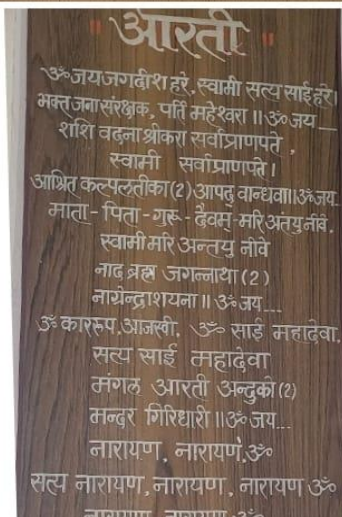 " आरती "
ॐ जय जगदीश हरे, स्वामी सत्य साई हरे।
भक्त जना संरक्षक, पर्ति महेश्वरा ॥ॐ जय__
शशि वदना श्रीकरा सर्वाप्राणपते ,
स्वामी सर्वाप्राणपते ।
आश्रित कल्पलतीका (2) आपद् वान्धवा॥ॐजय..
माता - पिता - गुरू - दैवम् - मरि अंतयु नीवे.
स्वामी मरि अन्तयु नीवे
नाद ब्रह्म जगन्नाथा (2)
नागेन्द्राशयना ॥ ॐ जय...
ॐ काररूप.ओजस्वी. ॐ साई महादेवा.
सत्य साई महादेवा
मंगल आरती अन्दुको (2)
मन्दर गिरिधारी ॥ॐ जय...
नारायण, नारायण.ॐ
सत्य नारायण, नारायण, नारायण ॐ